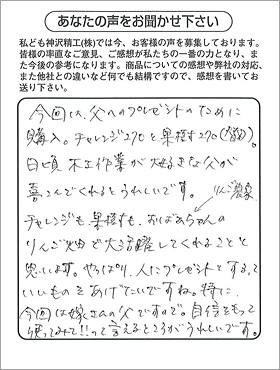 あなたの声をお聞かせ下さい
私ども神沢精工(株)では今、お客様の声を募集しております。
皆様の率直なご意見、ご感想が私たちの一番の力となり、ま
た今後の参考になります。商品についての感想や弊社の対応、
また他社との違いなど何でも結構ですので、感想を書いてお
送り下さい。
今回は、父へのプレゼントのために
購入。チャレンジ270と果樹す270(
日頃 木工作業が大好きな父が
喜こんでくれるとうれしいです。
りんご農家
チャレンジも、果樹すも、おばあちゃんの
りんご畑で大活躍してくれることと
思います。やっぱり、人にプレゼントするって
いいものをあげたいですね。特に、
今回は嫁さんの父ですので。自信をもって
使ってみて!!って言えるところがうれしいです。